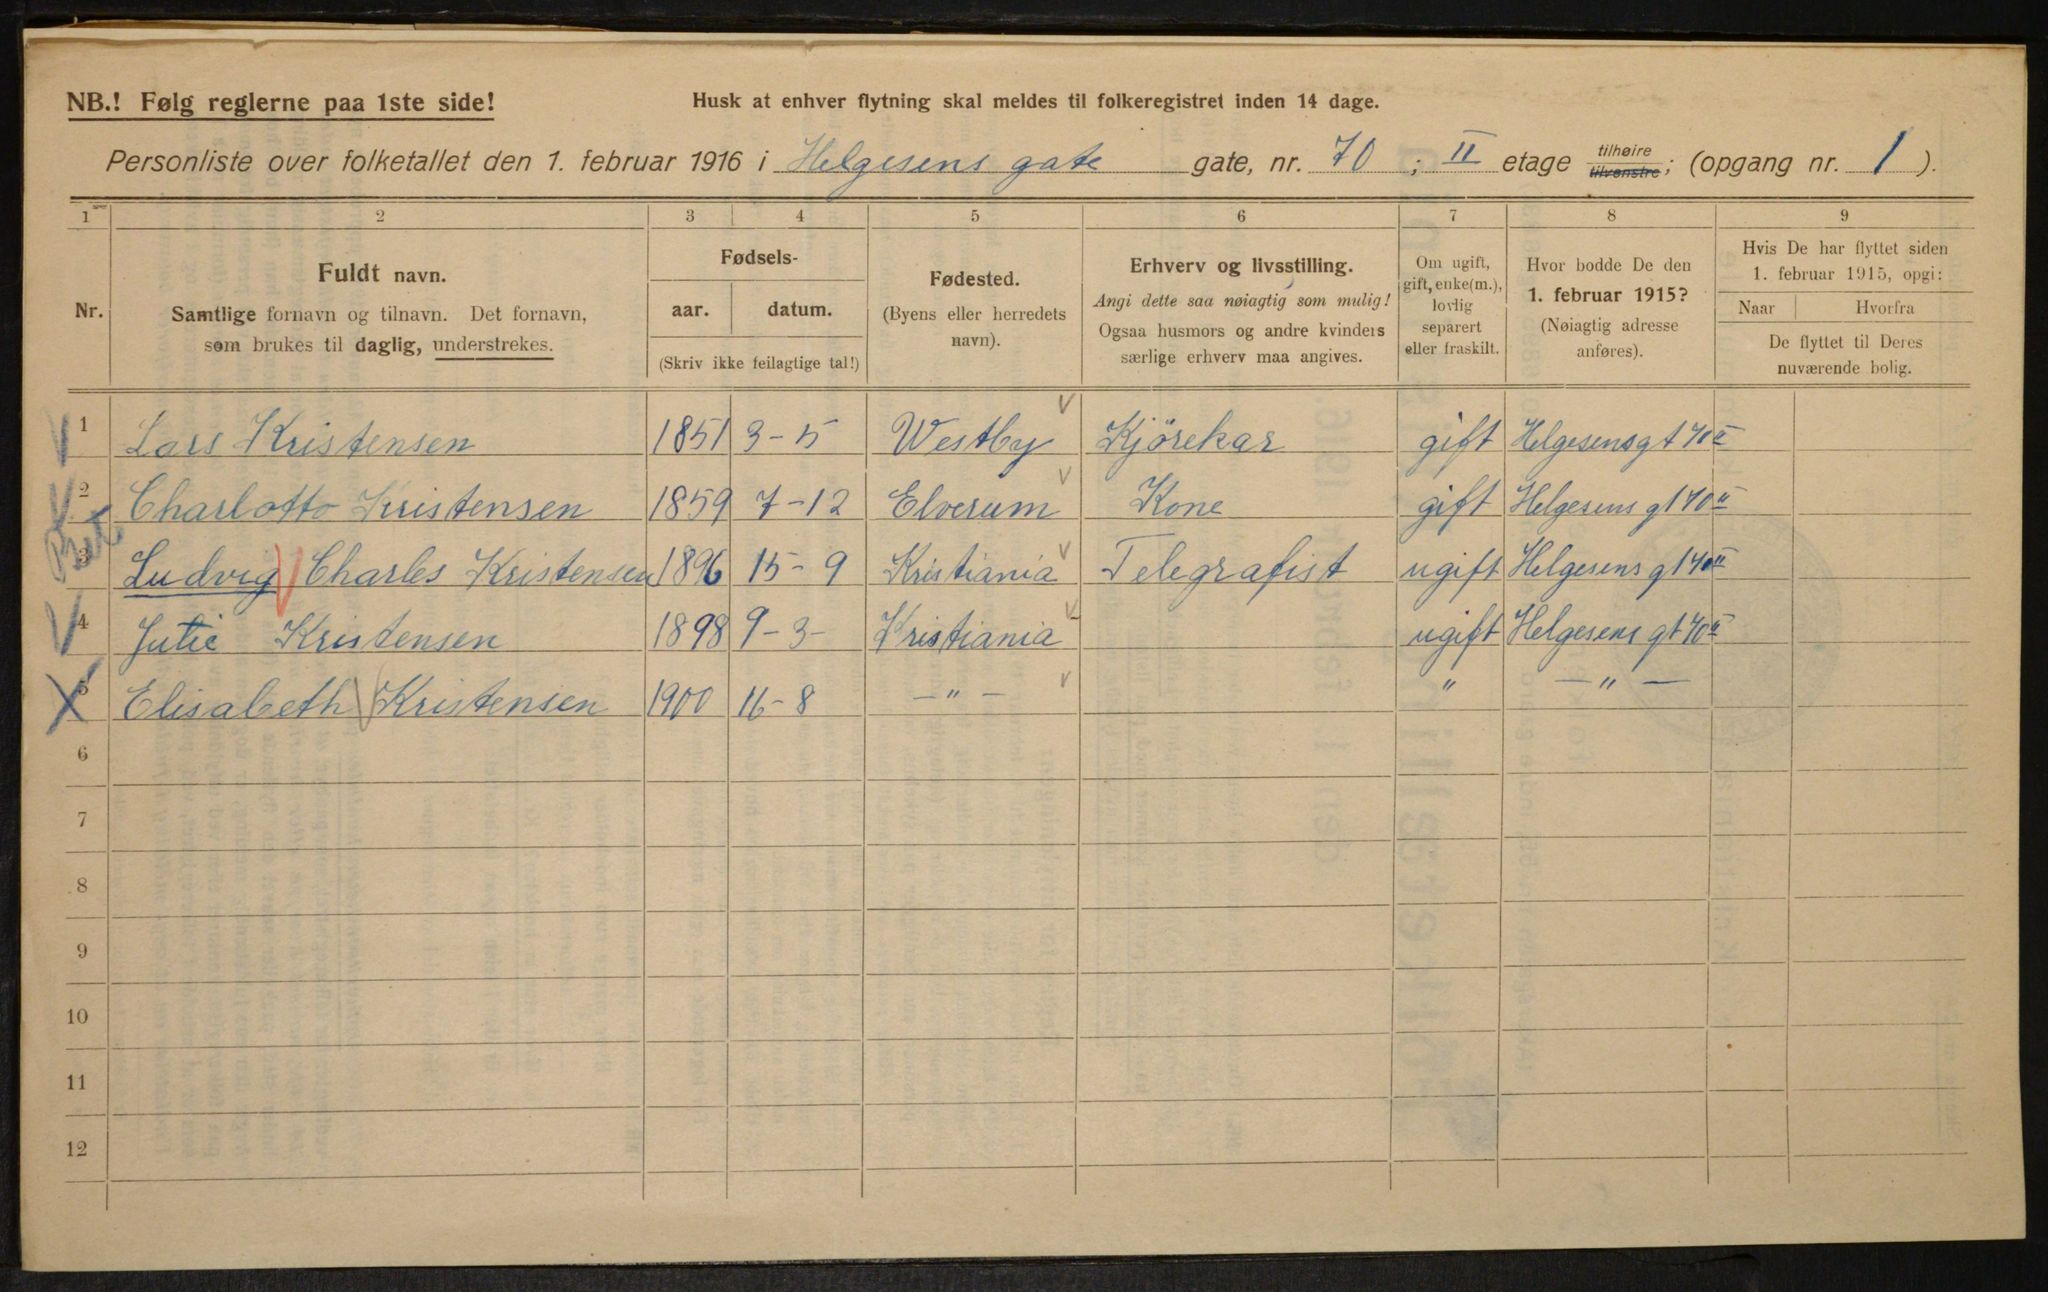 NB.! Følg reglerne paa 1ste side!
Husk at enhver flytning skal meldes til folkeregistret inden 14 dage.
Personliste over folketallet den 1. februar 1916 i Helgesens gate gate, nr. 70 ; II etage tilhøire tilvenstre; (opgang nr. 1 ).
1 2 3 4 5 6 7 8 9
Nr.
Fuldt navn.
Samtlige fornavn og tilnavn. Det fornavn,
som brukes til daglig, understrekes.
Fødsels-
aar. datum.
(Skriv ikke feilagtige tal!)
Fødested.
(Byens eller herredets
navn).
Erhverv og livsstilling.
Angi dette saa nøiagtig som mulig!
Ogsaa husmors og andre kvinders
særlige erhverv maa angives.
Om ugift,
gift, enke(m.),
lovlig
separert
eller fraskilt.
Hvor bodde De den
1. februar 1915?
(Nøiagtig adresse
anføres).
Hvis De har flyttet siden
1. februar 1915, opgi:
Naar Hvorfra
De flyttet til Deres
nuværende bolig.
1 Lars Kristensen 1851 3-5 Westby Kjörekar gift Helgesensgt 70 II
2 Charlotte Kristensen 1859 7-12 Elverum Kone gift Helgesens gt 70 II
3 Ludvig Charles Kristensen 1896 15-9 Kristiania Telegrafist ugift Helgesens gt 70 II
4 Julie Kristensen 1898 9-3- Kristiania ugift Helgesens gt 70 II
5 Elisabeth Kristensen 1900 16-8 —"— " —"—
6
7
8
9
10
11
12